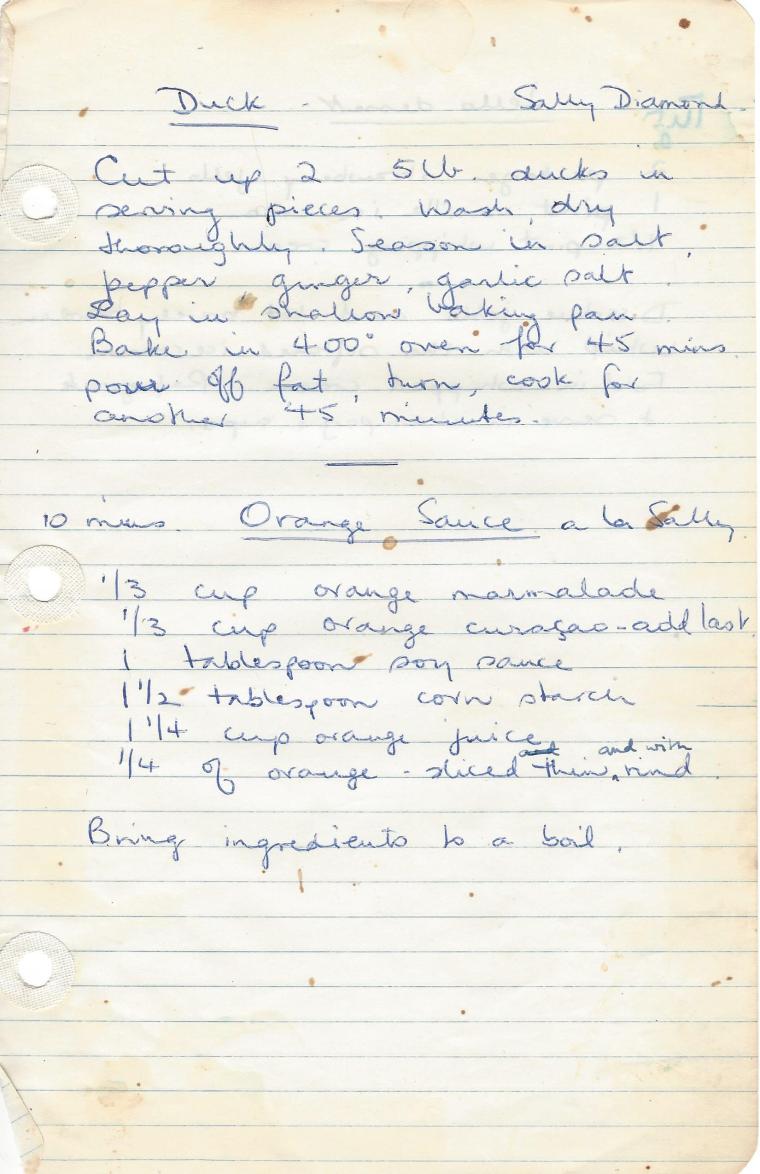 Duck - Sally Diamond
Cut up 2 5 lb. ducks in
serving pieces. Wash, dry
thoroughly. Season in salt,
pepper, ginger, garlic salt
Lay in shallow baking pan
Bake in 400° oven for 45 mins.
pour off fat, turn, cook for
another 45 minutes.
10 mins. Orange Sauce a la Sally
1/3 cup orange marmalade
1/3 cup orange curaçao - add last.
1 tablespoon soy sauce
1 1/2 tablespoon corn starch
1 1/4 cup orange juice
and with
1/4 of orange - sliced thin, rind.
Bring ingredients to a boil.